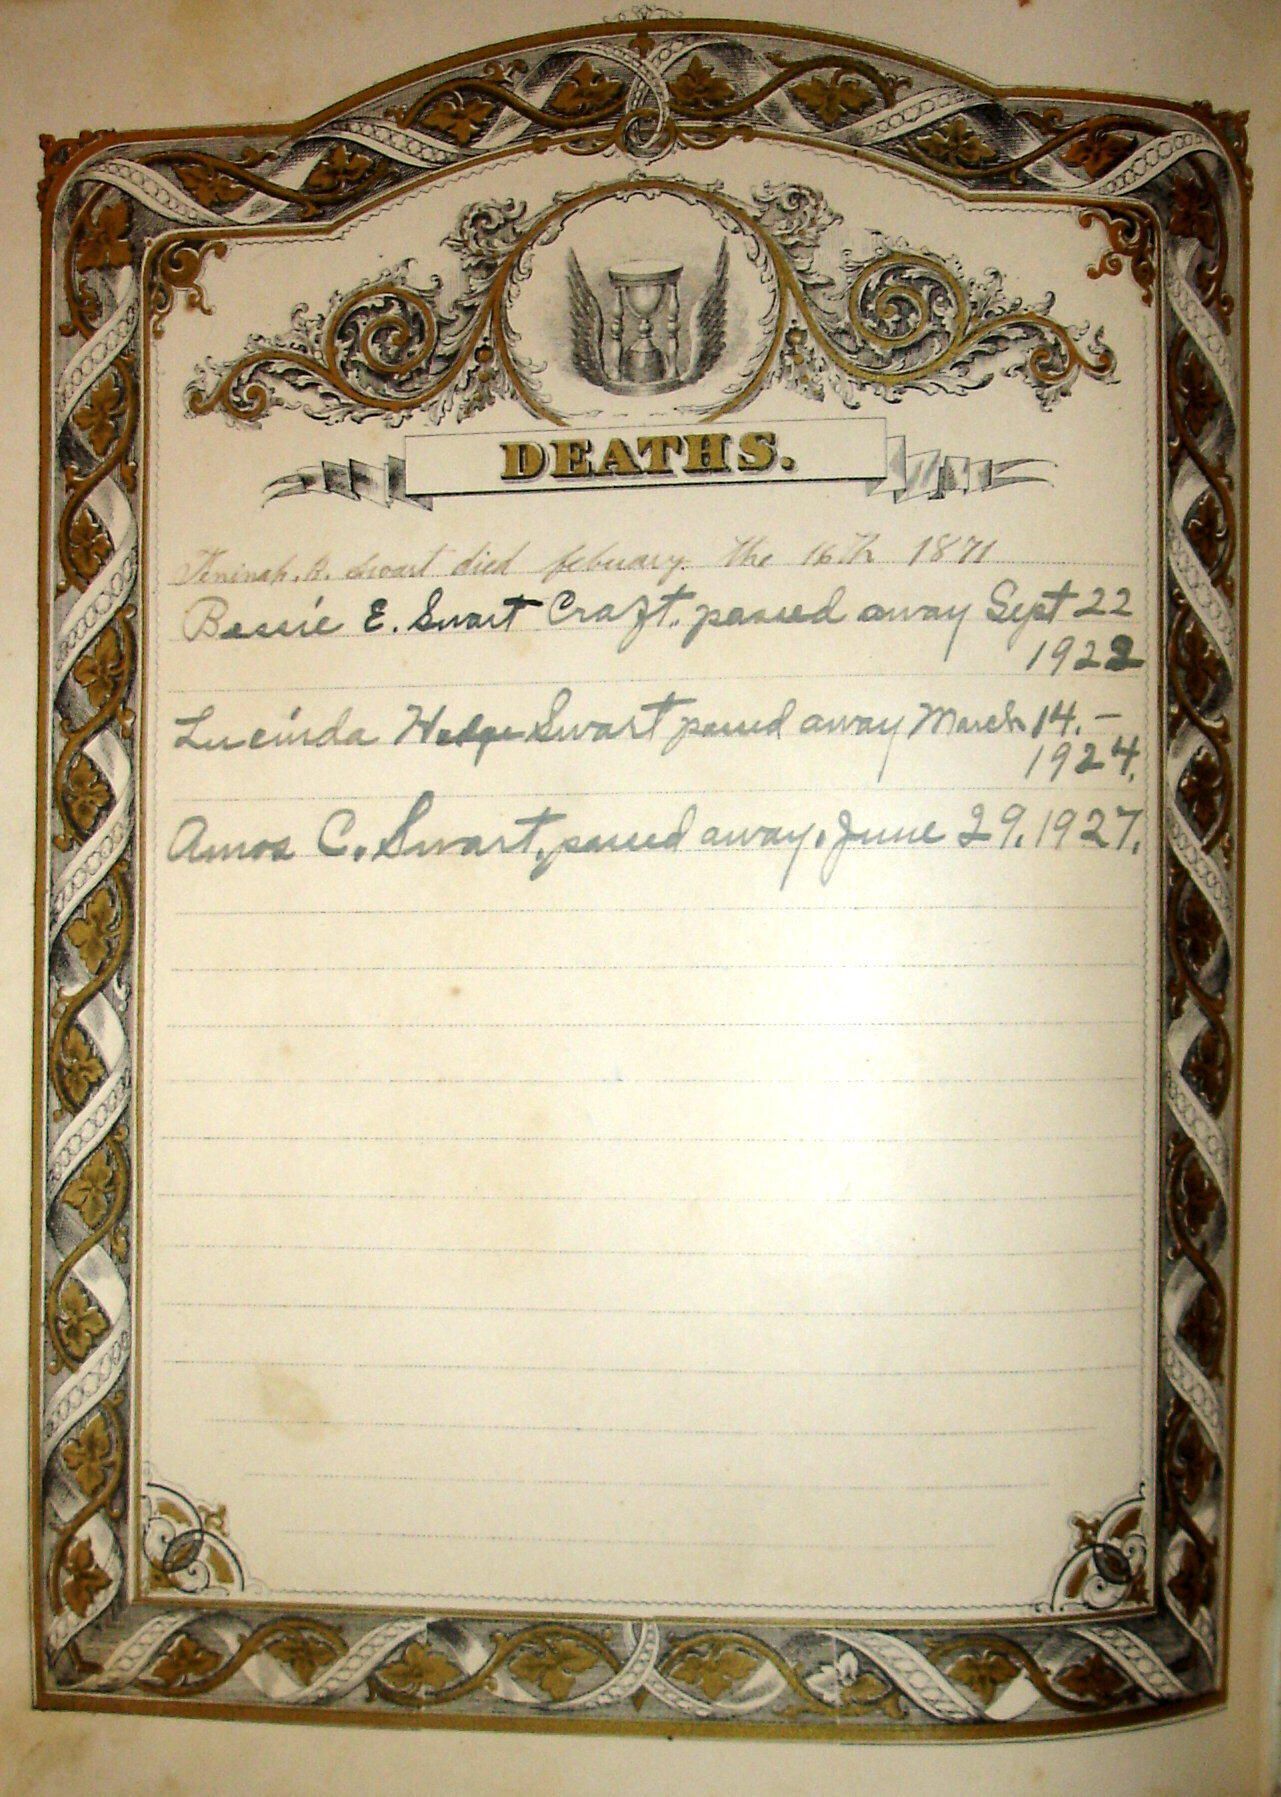 DEATHS.
B. Swart died febuary. the 16th 1871
Bessie E. Swart Craft. passed away Sept 22
1922
Lucinda Hedge Swart passed away March 14.–
1924.
Amos C. Swart, passed away. June 29. 1927.